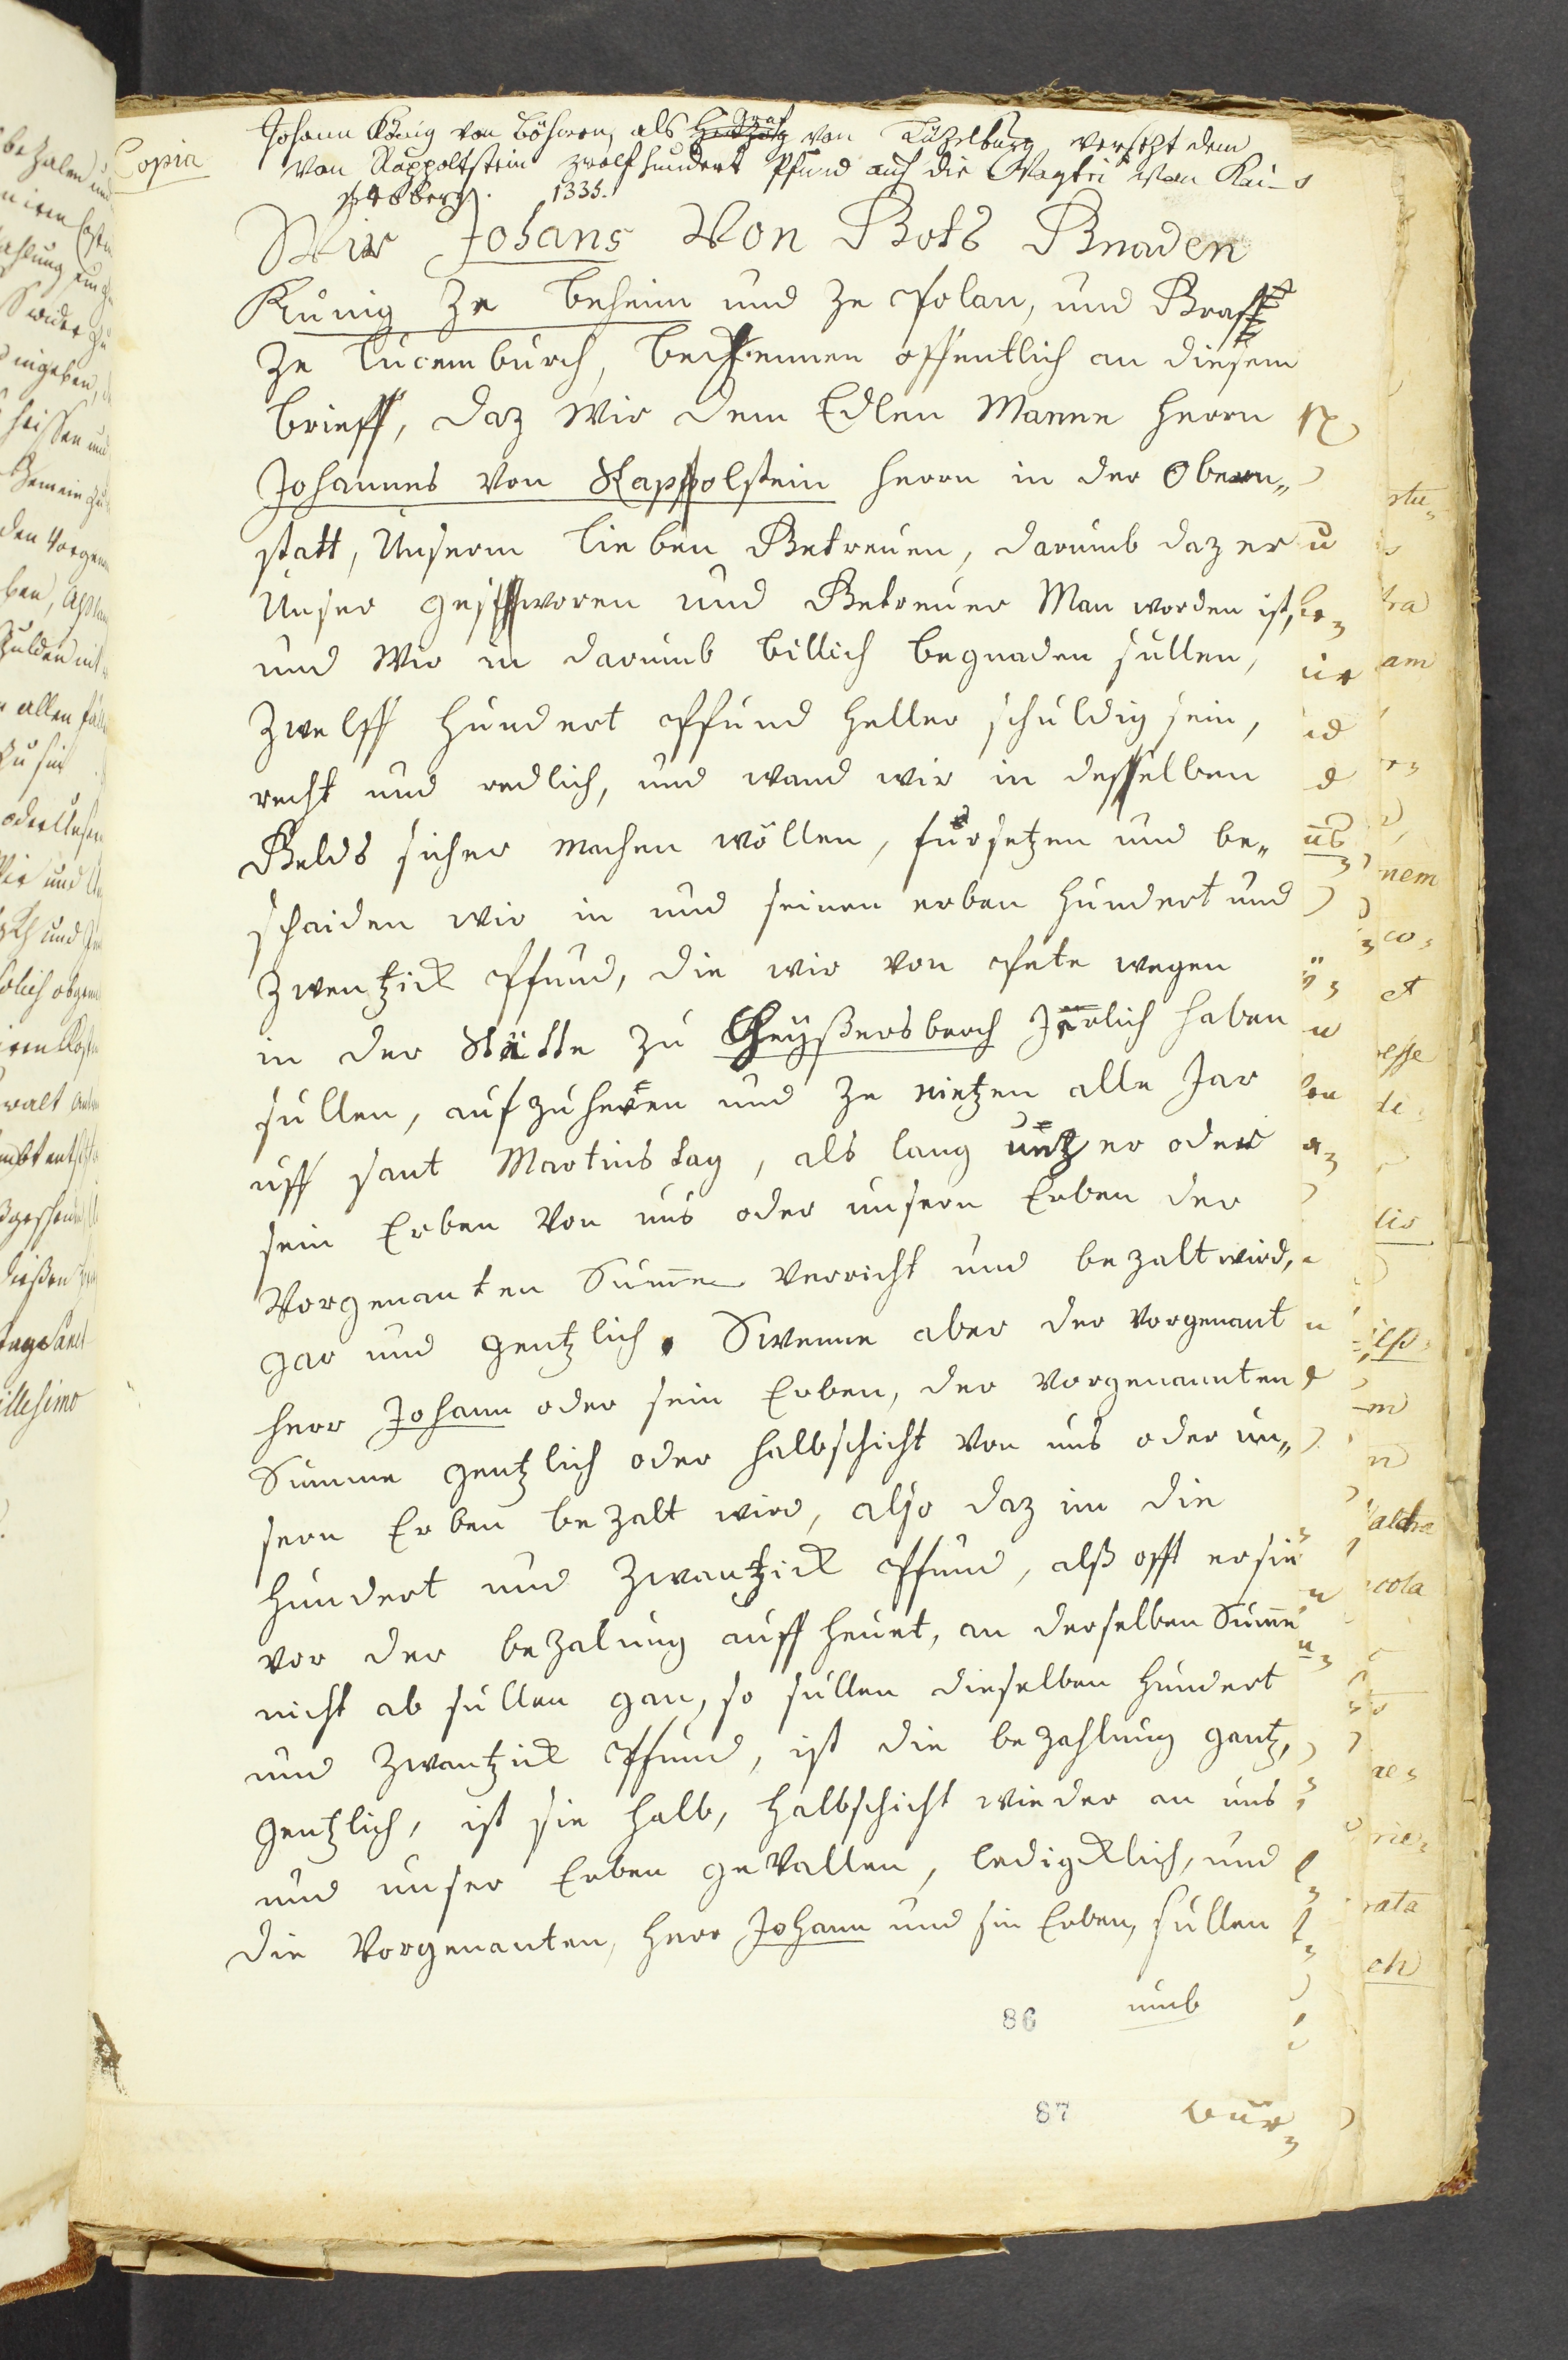 Copia
Johann König von Böhmen, als Graf Herzog von Lüzelburg versetzt dem
von Rappoltstein zwölfhundert Pfund auf die Vogtei von Kai-
sersberg. 1335.
Wir Johans Von Gots Gnaden
Kunig ze Beheim und ze Polan, und Graff
ze Lucemburch, bechennen offentlich an diesem
brieff, daz Wir dem Edlen Manne Herrn
Johannes von Rappolstein Herrn in der Obern„
statt, Unserm Lieben Getreuen, darumb daz er
Unser geschworen und Getreuer Man worden ist,
und Wir in darumb billich begnaden sullen,
zwelff Hundert Pfund Heller schuldig sein,
recht und redlich, und wand wir in desselben
Gelds sicher machen wöllen, fürsetzen und be„
schaiden wir in und seinen erben Hundert und
zwentzick Pfund, die wir von Pete wegen
in der Stätte zu Cheyßersberch Järlich haben
sullen, aufzuheven und ze nietzen alle Jar
uff sant Martins tag, als lang untz er oder
sein Erben von uns oder unsern Erben der
Vorgenanten Summe verricht und bezalt wird,
gar und gentzlich. Swenne aber der vorgenant
Herr Johann oder sein Erben, der vorgenannten
Summe gentzlich oder halbschicht von uns oder un„
sern Erben bezalt wird, also daz im die
Hundert und zwantzick Pfund, alß offt er sie
vor der bezalung auff heuet, an derselben Summe
nicht ab sullen gan, so sullen dieselben Hundert
und zwantzick Pfund, ist die bezahlung gantz,
gentzlich, ist sie halb, halbschicht wieder an uns
und unser Erben gevallen, ledigcklich, und
die Vorgenanten, Herr Johann und sin Erben, sullen
umb
86
87